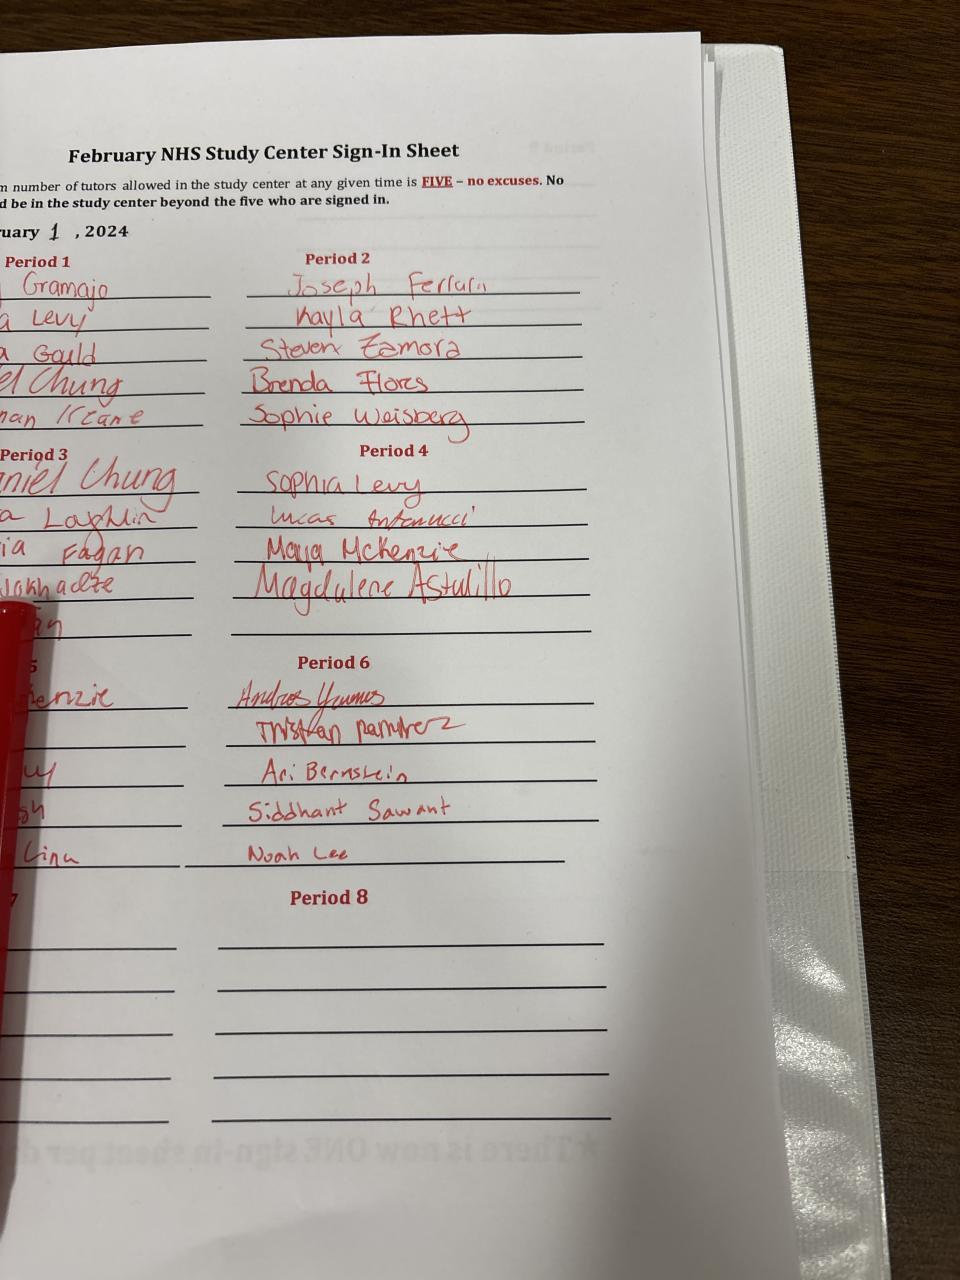 February NHS Study Center Sign-In Sheet
number of tutors allowed in the study center at any given time is FIVE – no excuses. No
be in the study center beyond the five who are signed in.
uary 1 , 2024
Period 1 Period 2
Gramajo Joseph
Levy Kayla Rhett
Gould Steven Zamora
Chung Brenda Flores
Krane Sophie Weisberg
Period 3 Period 4
niel Chung Sophia Levy
Lucas Antonucci
ia Fagan Maya McKenzie
Magdalene Astudillo
Period 6
enzie Andres
Tristan Ramirez
Ari Bernstein
Siddhant Sawant
Noah Lee
7 Period 8
There is now ONE sign-in sheet per d